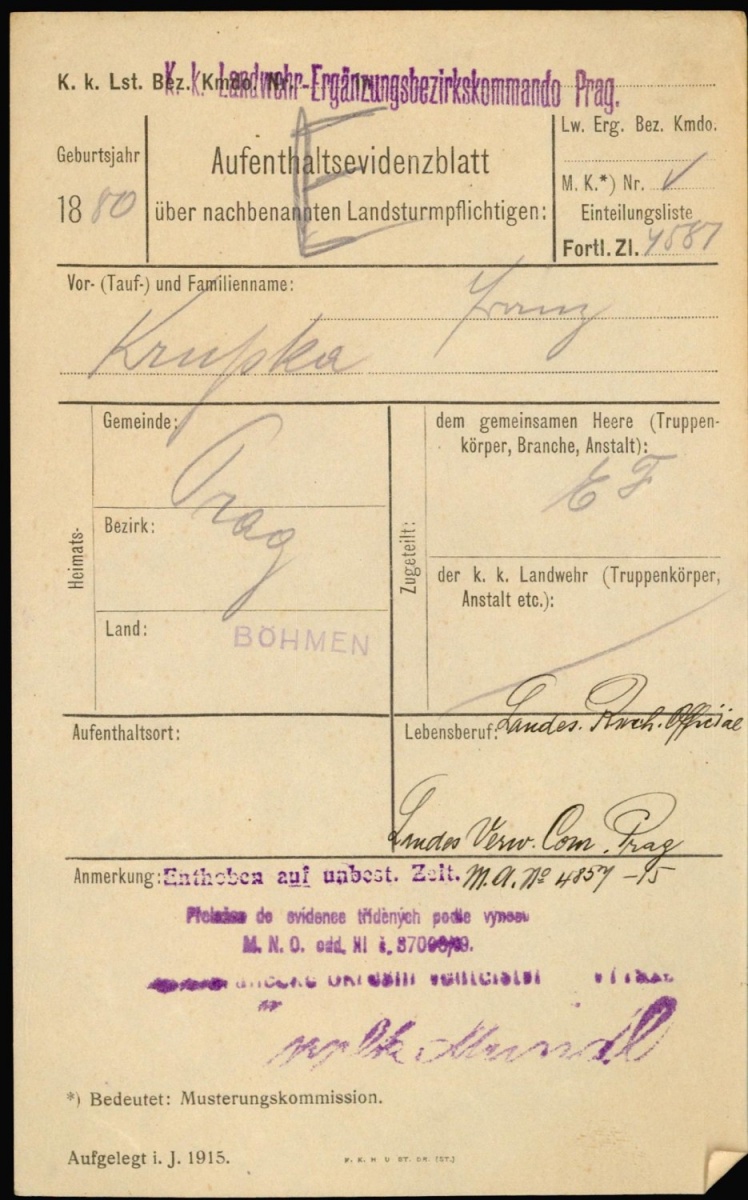 K. k. Lst. Bez. Kmdo. Nr.
K. k. Landwehr-Ergänzungsbezirkskommando Prag.
Geburtsjahr
1880
Aufenthaltsevidenzblatt
über nachbenannten Landsturmpflichtigen:
E
Lw. Erg. Bez. Kmdo.
M. K.*) Nr.
Einteilungsliste
Fortl. Zl. 4587
Vor- (Tauf-) und Familienname:
Franz
Krupka
Heimats-
Gemeinde:
Prag
Bezirk:
Land: BÖHMEN
Zugeteilt:
dem gemeinsamen Heere (Truppen-
körper, Branche, Anstalt):
E F
der k. k. Landwehr (Truppenkörper,
Anstalt etc.):
Aufenthaltsort:
Lebensberuf: Landes. Rech. Official
Landes Verw. Com. Prag
Anmerkung: Enthoben auf unbest. Zeit. M.A. No 4857 -15
do evidence tříděných podle výnosu
M. N. O. odd. XI č.
*) Bedeutet: Musterungskommission.
Aufgelegt i. J. 1915.